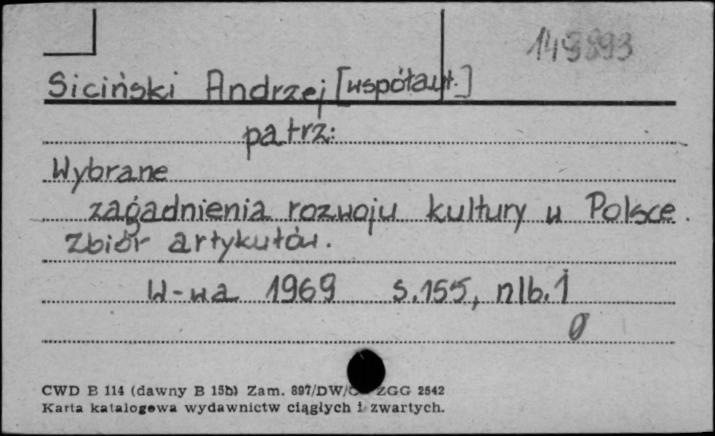 149893
Siciński Andrzej [współaut.]
patrz:
Wybrane
zagadnienia rozwoju kultury w Polsce.
Zbiór artykułów.
W-wa 1969 s.155, nlb.1
CWD B 114 (dawny B 15b) Zam. 897/DW/ ZGG 2542
Karta katalogowa wydawnictw ciągłych i zwartych.